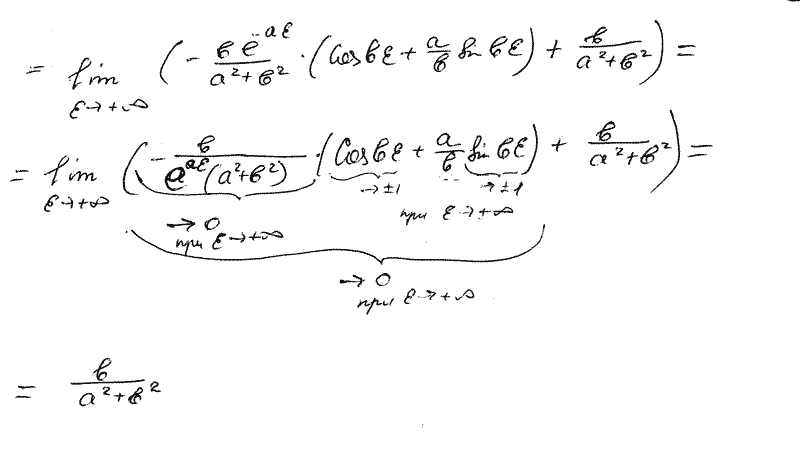 = lim ε→+∞ (- b e^{-aε}/(a²+b²) · (cos bε + a/b sin bε) + b/(a²+b²)) =
= lim ε→+∞ (- b/(e^{aε}(a²+b²)) · (cos bε + a/b sin bε) + b/(a²+b²)) =
→±1 →±1
→ 0 при ε→+∞
при ε→+∞
→ 0
при ε→+∞
= b/(a²+b²)